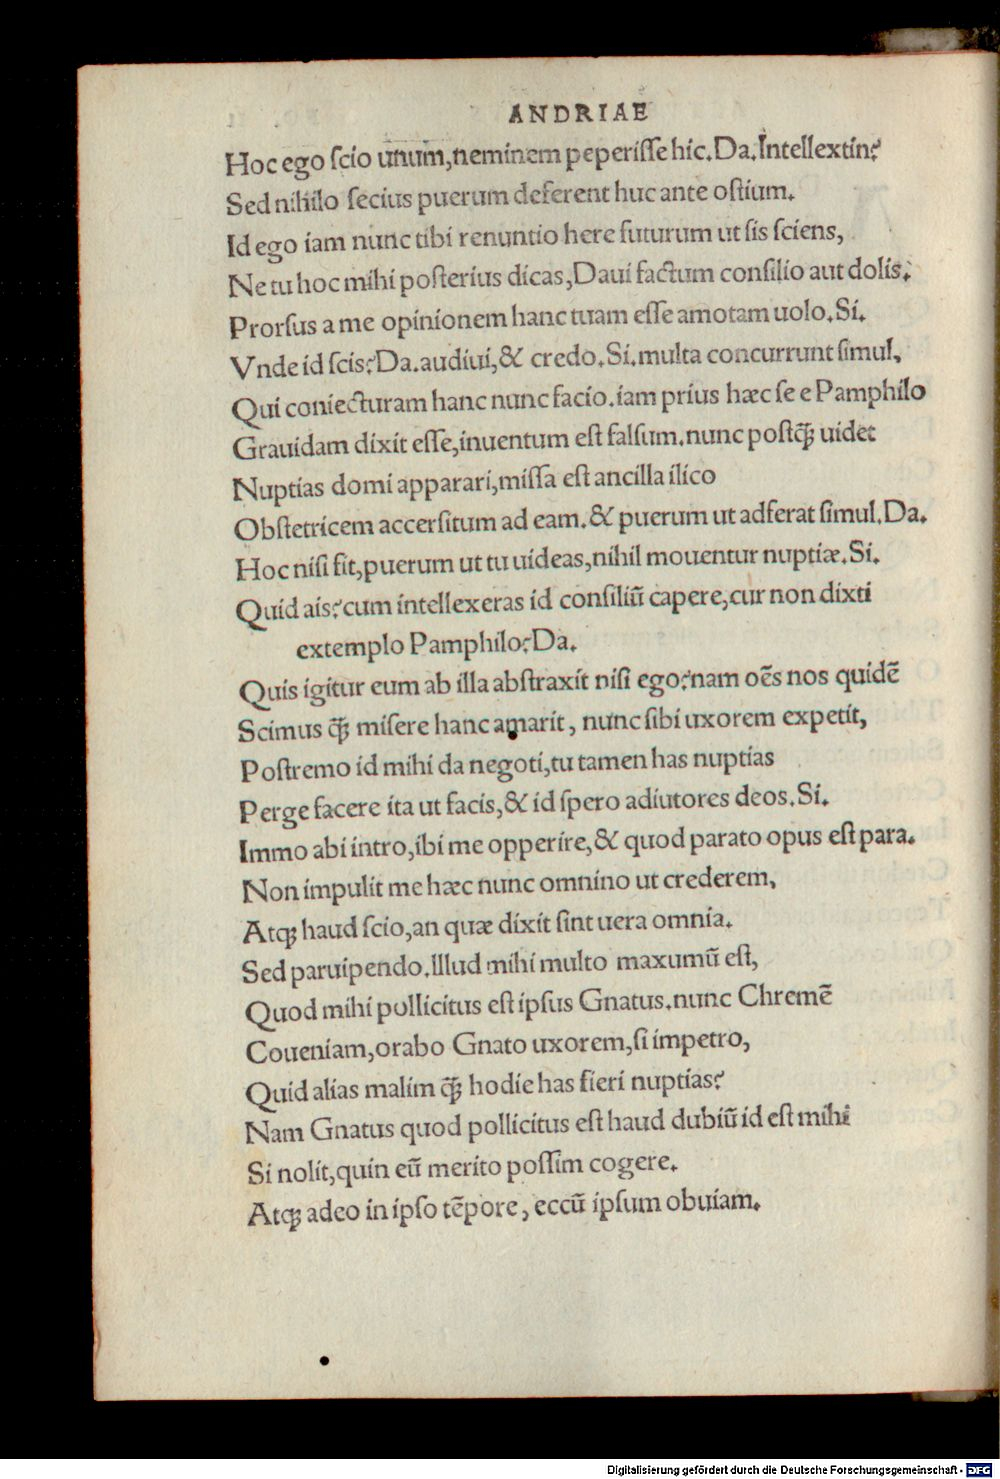 ANDRIAE
Hoc ego ſcio unum,neminem peperiſſe hic.Da.Intellextin?
Sed nihilo ſecius puerum deferent huc ante oſtium.
Id ego iam nunc tibi renuntio here futurum ut ſis ſciens,
Ne tu hoc mihi poſterius dicas,Daui factum conſilio aut dolis.
Prorſus a me opinionem hanc tuam eſſe amotam uolo.Si.
Vnde id ſcis?Da.audiui,& credo.Si.multa concurrunt ſimul,
Qui coniecturam hanc nunc facio.iam prius hæc ſe e Pamphilo
Grauidam dixit eſſe,inuentum eſt falſum.nunc poſtq̃ uidet
Nuptias domi apparari,miſſa eſt ancilla ilico
Obſtetricem accerſitum ad eam.& puerum ut adferat ſimul.Da.
Hoc niſi fit,puerum ut tu uideas,nihil mouentur nuptiæ.Si.
Quid ais?cum intellexeras id conſiliū capere,cur non dixti
extemplo Pamphilo?Da.
Quis igitur eum ab illa abſtraxit niſi ego?nam oēs nos quidē
Scimus q̃ miſere hanc amarit, nunc ſibi uxorem expetit,
Poſtremo id mihi da negoti,tu tamen has nuptias
Perge facere ita ut facis,& id ſpero adiutores deos.Si.
Immo abi intro,ibi me opperire,& quod parato opus eſt para.
Non impulit me hæc nunc omnino ut crederem,
Atq; haud ſcio,an quæ dixit ſint uera omnia.
Sed paruipendo.Illud mihi multo maxumū eſt,
Quod mihi pollicitus eſt ipſus Gnatus.nunc Chremē
Coueniam,orabo Gnato uxorem,ſi impetro,
Quid alias malim q̃ hodie has fieri nuptias?
Nam Gnatus quod pollicitus eſt haud dubiū id eſt mihi
Si nolit,quin eū merito poſſim cogere.
Atq; adeo in ipſo tēpore, eccū ipſum obuiam.
Digitalisierung gefördert durch die Deutsche Forschungsgemeinschaft - DFG